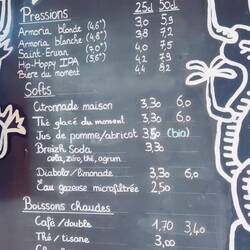 Pressions 25cl 50cl
Armoria blonde (4,6°) 3,0 5,9
Armoria blanche (4,6°) 3,8 7,2
Saint-Erwan (7,0°) 4,0 7,5
Hip-Hoppy IPA (5,6°) 4,4 8,2
Bière du moment 4,2
Softs
Citronnade maison 3,30 6,0
Thé glacé du moment 3,30 6,0
Jus de pomme/abricot 3,50 (bio)
Breizh Soda 3,30
cola, zéro, thé, agrum
Diabolo/limonade 3,30 6,0
Eau gazeuse microfiltrée 2,50
Boissons chaudes
Café/double 1,70 3,40
Thé/tisane 3,00